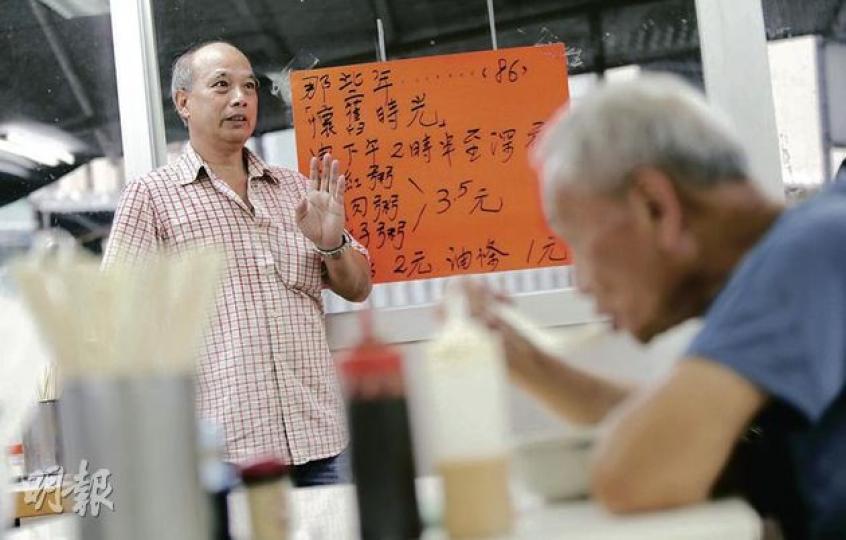 那些年........(86)
「懷舊時光」
下午2時半至深
紅粥
肉粥 3.5元
仔粥
2元 油條 1元
明報